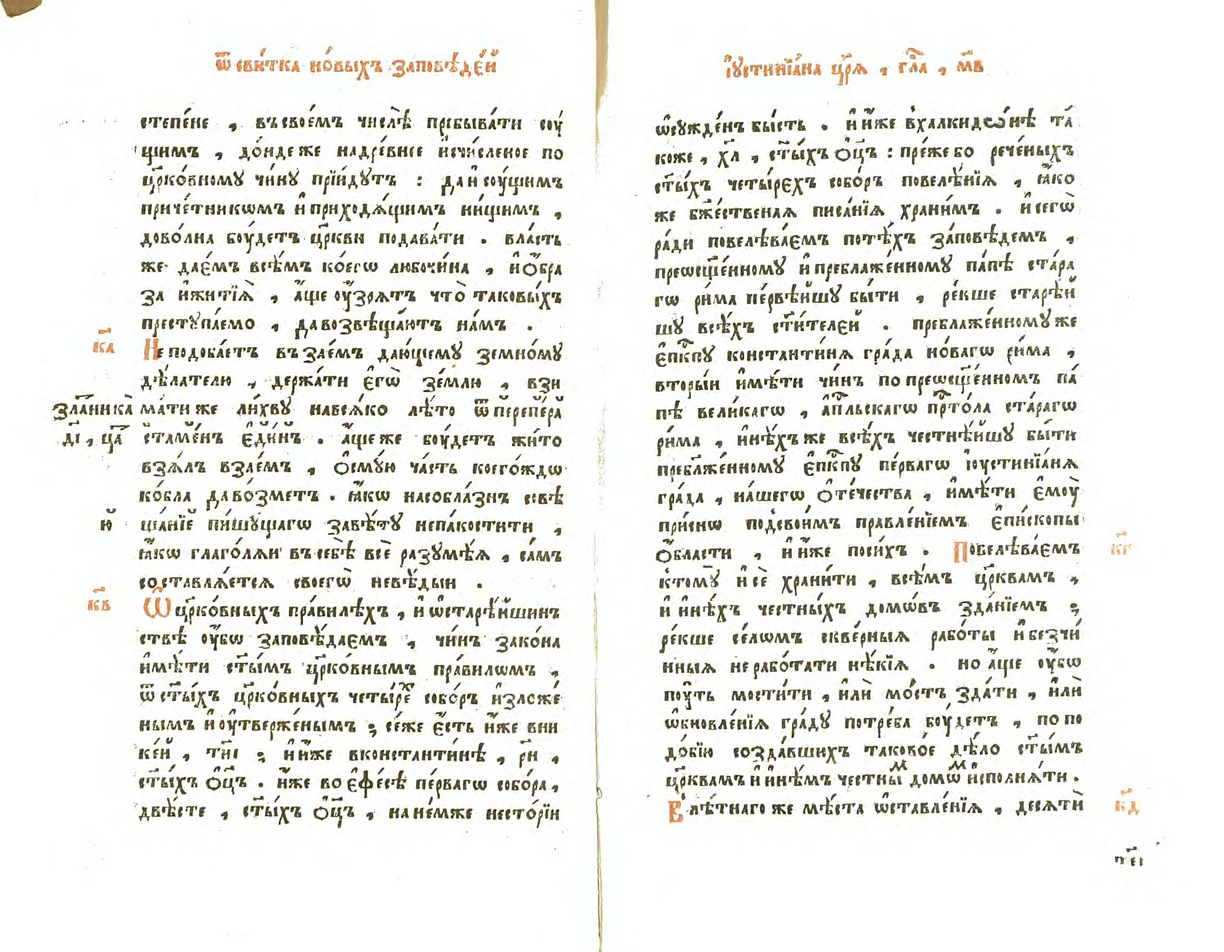 Ѿ сви́тка но́выхъ за́повѣде́й
степе́не , въсвое́мъ числѣ̀ пребыва́ти сꙋ́
щимъ , до́ндеже надре́внее и҆счи́сленое по
цр҃ко́вному чи́ну прїи́дутъ : даисоу́щимъ
приче́тникѡмъ и҆приходѧ́щимъ ни́щимъ ,
дово́лна боу́детъ цр҃кви подава́ти . вла́сть
же дае́мъ всѣ́мъ ко́егѡ любочи́на , и҆о҆́бра
за и҆житїѧ̀ , а҆́ще оу҆́зрѧтъ что̀ таковы́хъ
преступа́емо , давозвѣща́ютъ на́мъ .
к҃а
Не подоба́етъ въза́емъ даю́щему земно́му
дѣ́лателю , держа́ти є҆гѡ̀ зе́млю , взи
мати же ли́хву навсѧ́ко лѣ́то ѿ перпера̀
зла́тника
д҃і , ца҃
стаме́нъ є҆ди́нъ . а҆́щеже боу́детъ жи́то
взѧ́лъ вза́емъ , о҆смꙋ́ю ча́сть коего́ждѡ
ко́бла даво́зметъ . ꙗ҆́кѡ насобла́знъ совѣ
и҃
ща́нїе пи́шущагѡ завѣ́ту непа́костити ,
ꙗ҆́кѡ глаго́лѧи въсебѣ̀ всѐ разумѣ́ѧ , са́мъ
составлѧ́етсѧ своегѡ̀ невѣ́дыи .
к҃в
Ѡ цр҃ко́вныхъ пра́вилѣхъ , и҆ ѡ҆старѣ́йшин
ствѣ оу҆́бѡ заповѣ́даемъ , чи́нъ зако́на
и҆мѣ́ти ст҃ы́мъ цр҃ко́внымъ пра́вилѡмъ ,
ѿ ст҃ы́хъ цр҃ко́вныхъ четы́ре собо́ръ и҆зложе́
нымъ и҆оу҆тверже́нымъ ; се́же є҆́сть и҆́же вни
ке́и , ти҃і ; и҆ и҆́же вконстанти́нѣ , р҃н ,
ст҃ы́хъ ѻ҆ц҃ъ . и҆́же во є҆фе́сѣ пе́рвагѡ собо́ра ,
двѣ́сте , ст҃ы́хъ ѻ҆ц҃ъ , нане́мже несто́рїи
і҆устинїа́на цр҃ѧ , гл҃а , м҃в
ѡ҆сужде́нъ бы́сть . и҆ и҆́же вхалкидо́нѣ та́
коже , х҃л , ст҃ы́хъ ѻ҆ц҃ъ : пре́же бо рече́ныхъ
ст҃ы́хъ четы́рехъ собо́ръ повелѣ́нїѧ , ꙗ҆́ко
же бж҃е́ственаѧ писа́нїѧ храни́мъ . и҆сегѡ̀
ра́ди повелѣва́емъ потѣ́хъ за́повѣдемъ ,
преѡсщ҃е́нному и҆ преблаже́нному па́пѣ ста́ра
гѡ ри́ма пе́рвѣйшу бы́ти , ре́кше старѣ́й
шу всѣ́хъ ст҃и́телей . преблаже́нному же
є҆пк҃пу константи́нѧ гра́да но́вагѡ ри́ма ,
вторы́и и҆мѣ́ти чи́нъ по преѡсщ҃е́нномъ па́
пѣ вели́кагѡ , а҆пⷭ҇льскагѡ прⷭ҇то́ла ста́рагѡ
ри́ма , и҆нѣ́хъ же всѣ́хъ честнѣ́йшу бы́ти
пребл҃же́нному є҆пк҃пу пе́рвагѡ і҆оустинїа́нѧ
гра́да , на́шегѡ ѻ҆те́чества , и҆мѣ́ти є҆моу̀
при́снѡ подсвои́мъ правле́нїемъ є҆пи́скопы
о҆́бласти , и҆ и҆́же поси́хъ . Повелѣва́емъ
к҃г
ктому̀ и҆ сѐ храни́ти , всѣ́мъ цр҃квамъ ,
и҆ и҆нѣ́хъ честны́хъ домѡ́въ зда́нїемъ ;
ре́кше се́ломъ скве́рныѧ рабо́ты и҆ безчи́
нныѧ нерабо́тати нѣ́кїѧ . но а҆́ще оу҆́бѡ
поу́ть мости́ти , и҆лѝ мо́стъ зда́ти , и҆лѝ
ѡ҆бновле́нїѧ гра́ду потре́ба боу́детъ , по по
до́бїю созда́вшихъ таково́е дѣ́ло ст҃ы́мъ
цр҃квамъ и҆ и҆нѣ́мъ честны́м домѡ́м и҆сполнѧ́ти .
Влѣ́тнаго же мѣ́ста ѡ҆ставле́нїѧ , десѧти̂
к҃д